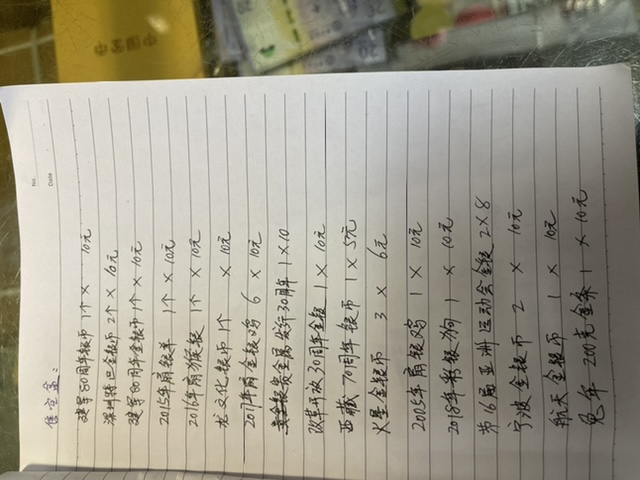 No.
Date
售空盒:
建军80周年银币 1个 × 10元
深圳特巴金银币 2个 × 10元
建军80周年金银币 1个 × 10元
2015年扇银羊 1个 × 10元
2016年扇猴银 1个 × 10元
龙文化银币 1个 × 10元
2017年扇金银鸡 6 × 10元
贵金属发行30周年 1×10
改革开放30周年金银 1 × 10元
西藏70周年银币 1 × 5元
火星金银币 3 × 6元
2005年扇银鸡 1 × 10元
2018年彩银狗 1 × 10元
第16届亚洲运动会金银 2×8
宁波金银币 2 × 10元
航天金银币 1 × 10元
兔年200克金 1 × 10元